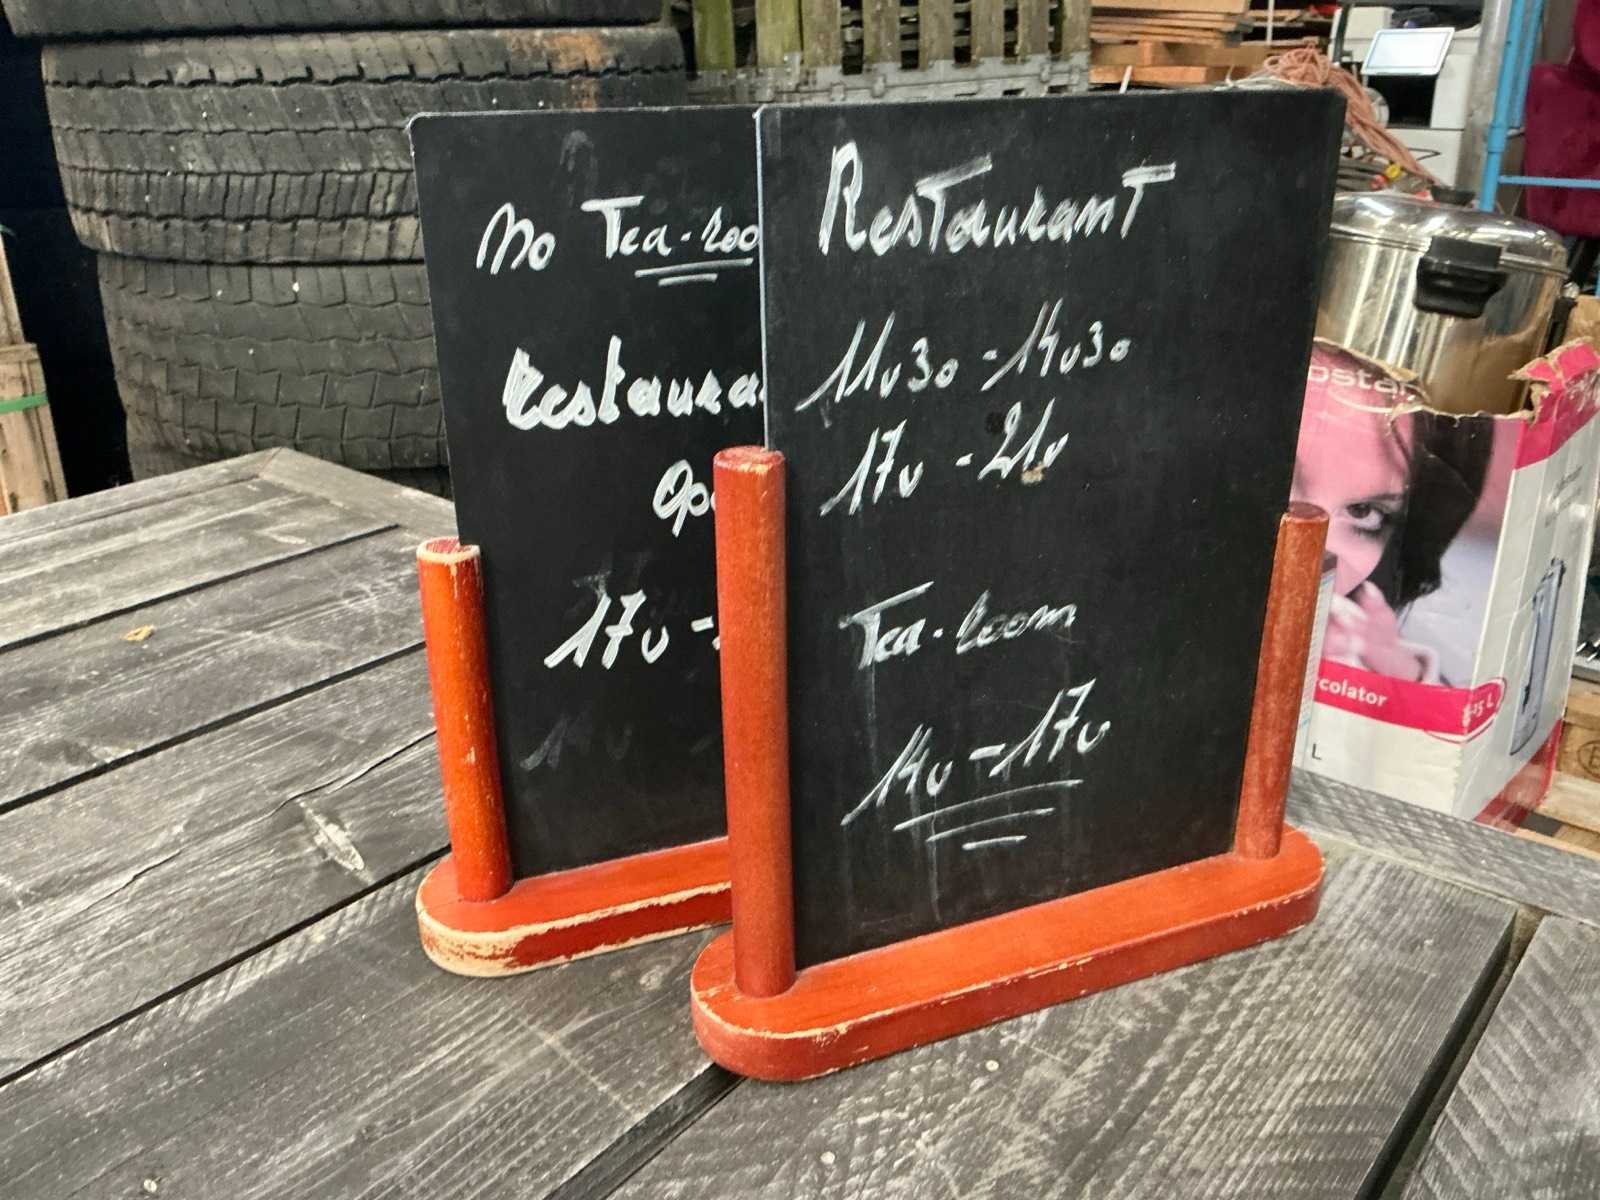 No Tea-roo
Restaura
Ope
17u -
Restaurant
11u30 - 14u30
17u - 21u
Tea-room
14u - 17u
osta
rcolator
L